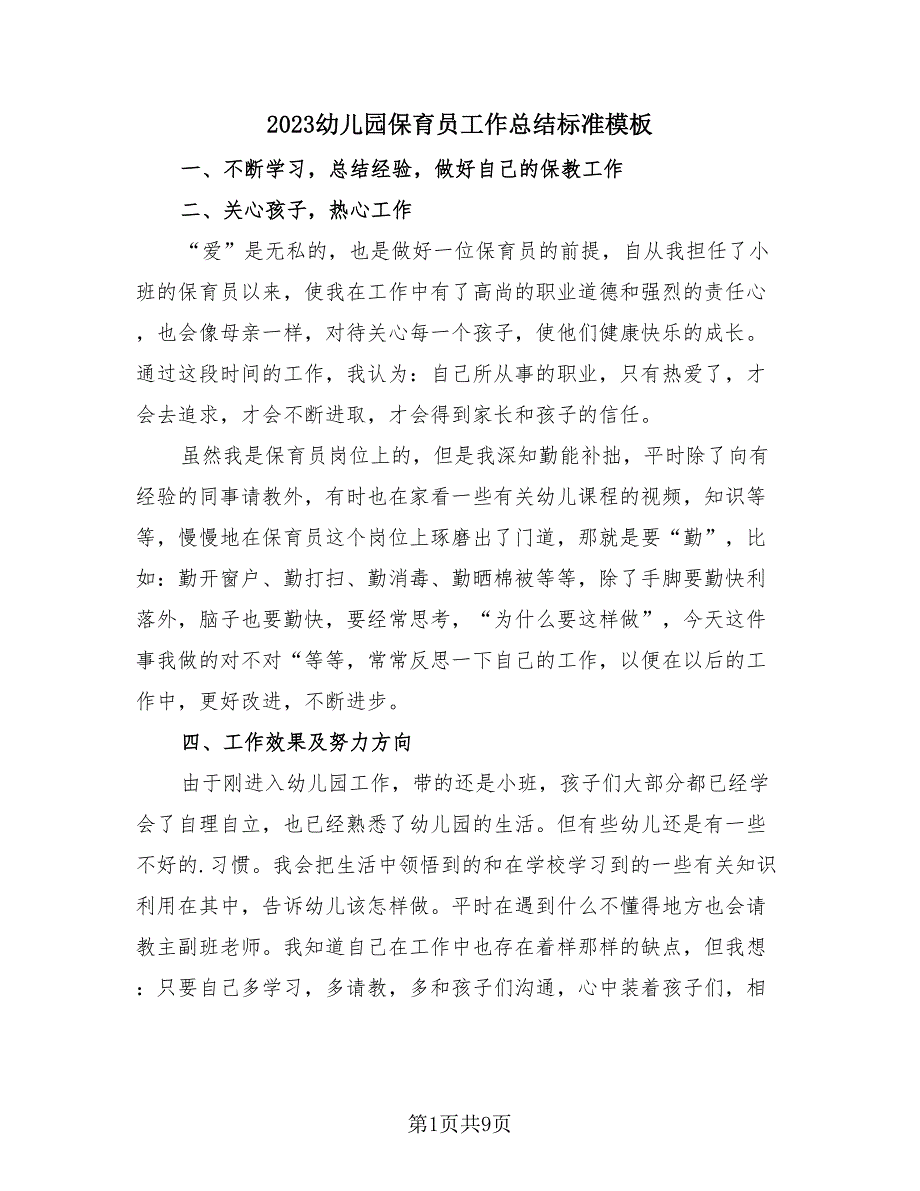 2023幼儿园保育员工作总结标准模板
一、不断学习，总结经验，做好自己的保教工作
二、关心孩子，热心工作
“爱”是无私的，也是做好一位保育员的前提，自从我担任了小
班的保育员以来，使我在工作中有了高尚的职业道德和强烈的责任心
，也会像母亲一样，对待关心每一个孩子，使他们健康快乐的成长。
通过这段时间的工作，我认为：自己所从事的职业，只有热爱了，才
会去追求，才会不断进取，才会得到家长和孩子的信任。
虽然我是保育员岗位上的，但是我深知勤能补拙，平时除了向有
经验的同事请教外，有时也在家看一些有关幼儿课程的视频，知识等
等，慢慢地在保育员这个岗位上琢磨出了门道，那就是要“勤”，比
如：勤开窗户、勤打扫、勤消毒、勤晒棉被等等，除了手脚要勤快利
落外，脑子也要勤快，要经常思考，“为什么要这样做”，今天这件
事我做的对不对“等等，常常反思一下自己的工作，以便在以后的工
作中，更好改进，不断进步。
四、工作效果及努力方向
由于刚进入幼儿园工作，带的还是小班，孩子们大部分都已经学
会了自理自立，也已经熟悉了幼儿园的生活。但有些幼儿还是有一些
不好的.习惯。我会把生活中领悟到的和在学校学习到的一些有关知识
利用在其中，告诉幼儿该怎样做。平时在遇到什么不懂得地方也会请
教主副班老师。我知道自己在工作中也存在着样那样的缺点，但我想
：只要自己多学习，多请教，多和孩子们沟通，心中装着孩子们，相
第1页共9页